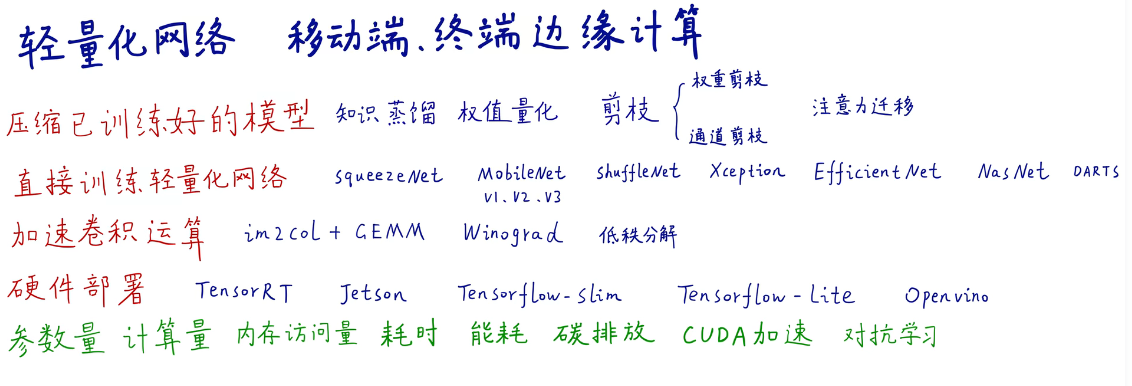 轻量化网络 移动端、终端边缘计算
压缩已训练好的模型 知识蒸馏 权值量化 剪枝 { 权重剪枝 通道剪枝 注意力迁移
直接训练轻量化网络 squeezeNet MobileNet shuffleNet Xception EfficientNet NasNet DARTS
V1、V2、V3
加速卷积运算 im2col + GEMM Winograd 低秩分解
硬件部署 TensorRT Jetson Tensorflow-slim Tensorflow-Lite Openvino
参数量 计算量 内存访问量 耗时 能耗 碳排放 CUDA加速 对抗学习